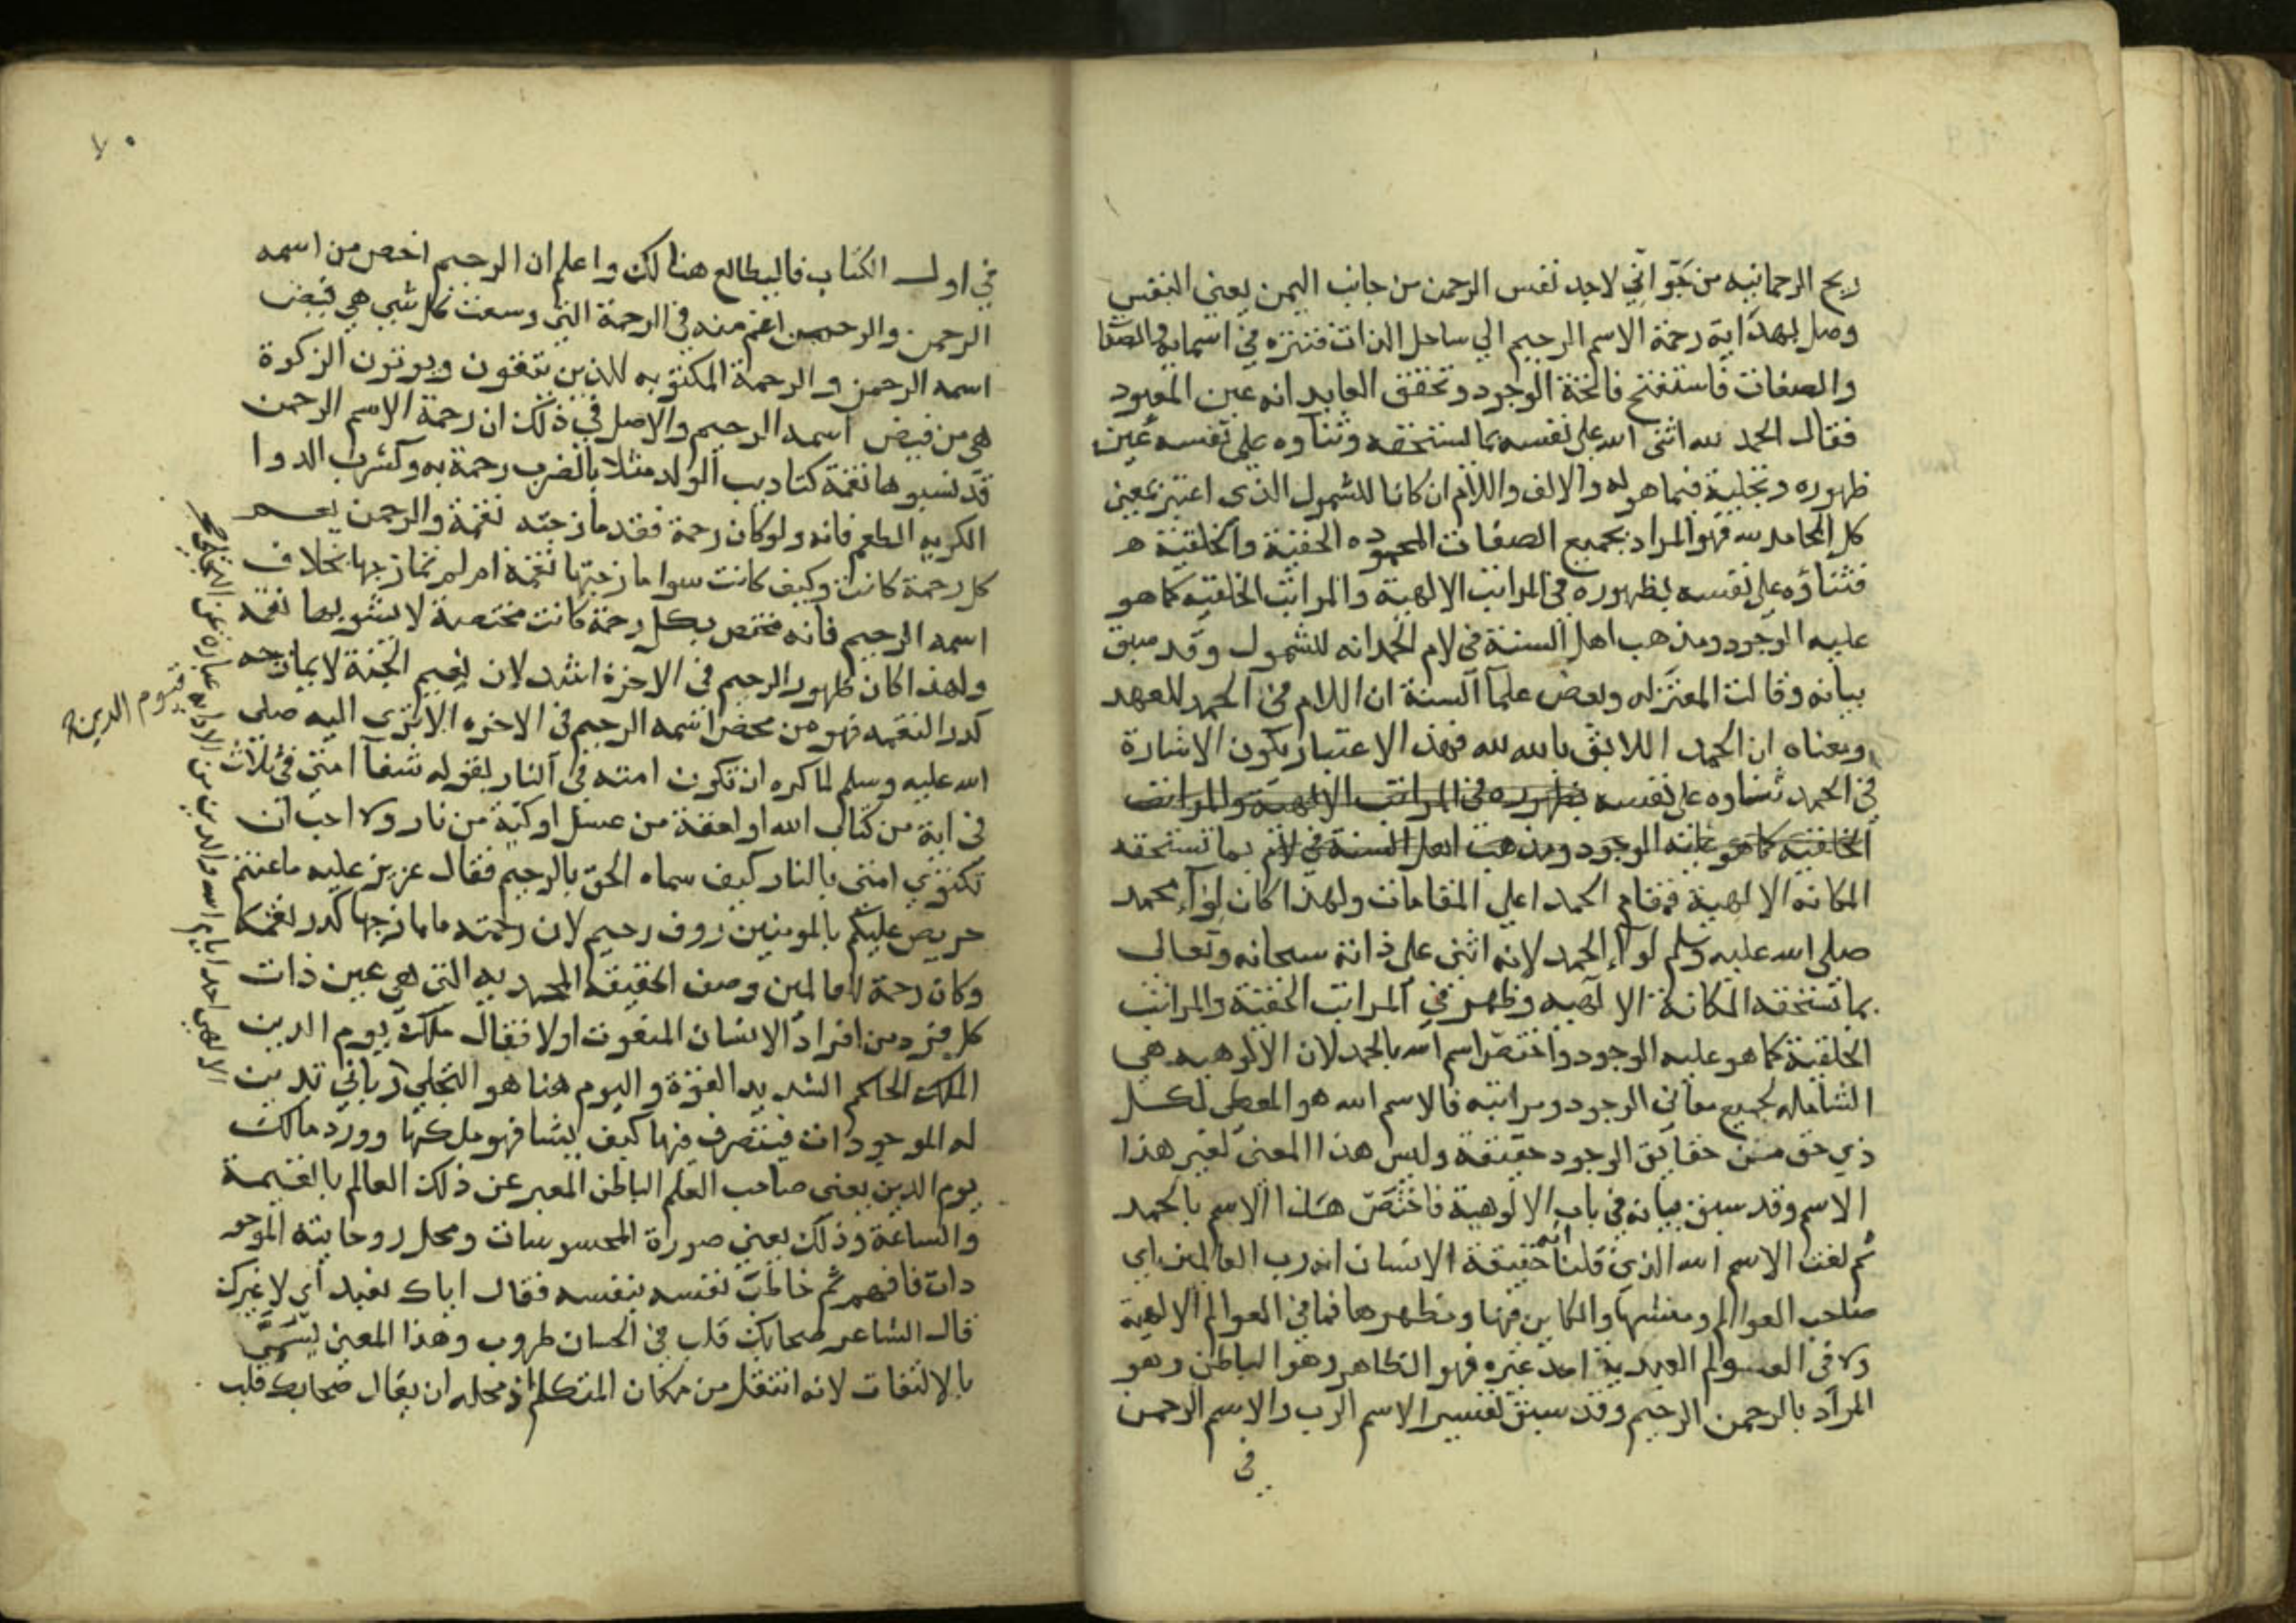 ريح الرحمانيه من جو اني لاجد نفس الرحمن من جانب اليمن يعني النفس
وصل بهداية رحمة الاسم الرحيم الي ساحل الذات فتنزه في اسمايه والصفا
والصفات فاستفتح فاتحة الوجود وتحقق العابد انه عين المعبود
فقال الحمد لله اثني الله علي نفسه بما يستحقه وثناوه علي نفسه عين
ظهوره وتجليه فيما هو له والالف واللام ان كانا للشمول الذي اعتبر بمعني
كل المحامد لله فهو المراد بجميع الصفات المحموده الحقية والخلقية
فثناؤه علي نفسه بظهوره في المراتب الالهية والمراتب الخلقيه كما هو
عليه الوجود ومذهب اهل السنة في لام الحمد انه للشمول وقد سبق
بيانه وقالت المعتزله وبعض علما السنة ان اللام في الحمد للعهد
ومعناه ان الحمد اللايق بالله لله فهذ الاعتبار يكون الاشارة
في الحمد ثناوه علي نفسه بظهوره في المراتب الالهية والمراتب
الخلقيه كما هو عليه الوجود ومذهب اهل السنة في لام بما تستحقه
المكانه الالهية فمقام الحمد اعلي المقامات ولهذا كان لوآء محمد
صلي الله عليه وسلم لوآء الحمد لانه اثني علي ذاته سبحانه وتعالي
بما تستحقه المكانة الالهيه وظهر في المراتب الحقية والمراتب
الخلقية كما هو عليه الوجود واختص اسم الله بالحمد لان الالوهيه هي
الشامله لجميع معاني الوجود ومراتبه فالاسم الله هو المعطي لكل
ذي حق من حقايق الوجود حقيقة وليس هذا المعني لغير هذا
الاسم وقد سبق بيانه في باب الالوهية فاختص هذا الاسم بالحمد
ثم نعت الاسم الله الذي قلنا انه حقيقة الانسان انه رب العالمين اي
صاحب العوالم ومنشيها والكاين فيها ومظهرها فما في العوالم الالهية
ولا في العوالم العبدية احد غيره فهو الظاهر وهو الباطن وهو
المراد بالرحمن الرحيم وقد سبق تفسير الاسم الرب والاسم الرحمن
في
في اول الكتاب فاليطالع هنالك واعلم ان الرحيم اخص من اسمه
الرحمن والرحمن اعم منه في الرحمة التي وسعت كل شي هي فيض
اسمه الرحمن والرحمة المكتوبه للذين يتقون ويوتون الزكوة
هي من فيض اسمه الرحيم والاصل في ذلك ان رحمة الاسم الرحمن
قد تشبوها نقمة كتاديب الولد مثلا بالضرب رحمة به وكشرب الدوا
الكريه الطعم فانه ولو كان رحمة فقد مازجته نقمة والرحمن يعم
كل رحمة كانت وكيف كانت سوا مازجتها نقمة ام لم تمازجها بخلاف
اسمه الرحيم فانه مختص بكل رحمة كانت مختصة لا يشوبها نقمه
ولهذا كان ظهور الرحيم في الاخرة اشد لان نعيم الجنة لا يمازجه
كدر النقمه فهو من محض اسمه الرحيم في الاخره الا تري اليه صلي
الله عليه وسلم لما كره ان تكون امته في النار بقوله شفآ امتي في ثلاث
في اية من كتاب الله او لعقة من عسل او كية من نار ولا احب ان
تكتوي امتي بالنار كيف سماه الحق بالرحيم فقال عزيز عليه ما عنتم
حريص عليكم بالمومنين روف رحيم لان رحمته ما مازجها كدر نقمة
وكان رحمة للعالمين وصف الحقيقه المحمديه التي هي عين ذات
كل فرد من افراد الانسان المنعوت اولا فقال ملك يوم الدين
الملك الحاكم الشديد القوة واليوم هنا هو التجلي رباني تدين
له الموجودات فيتصرف فيها كيف يشا فهو ملكها وورد مالك
يوم الدين يعني صاحب العلم الباطن المعبر عن ذلك العالم بالقيمة
والساعة وذلك يعني صورة المحسوسات ومحل روحانية الموجو
دات فافهم ثم خاطب نفسه بنفسه فقال اياك نعبد اي لا غيرك
قال الشاعر ضحابك قلب في الحسان طروب وهذا المعني يسمي
بالالتفات لانه انتقل من مكان المتكلم اذ محله ان يقال ضحابك قلب
فيوم الدين
عبارة عن
احد ايام الله والدين من الادانه